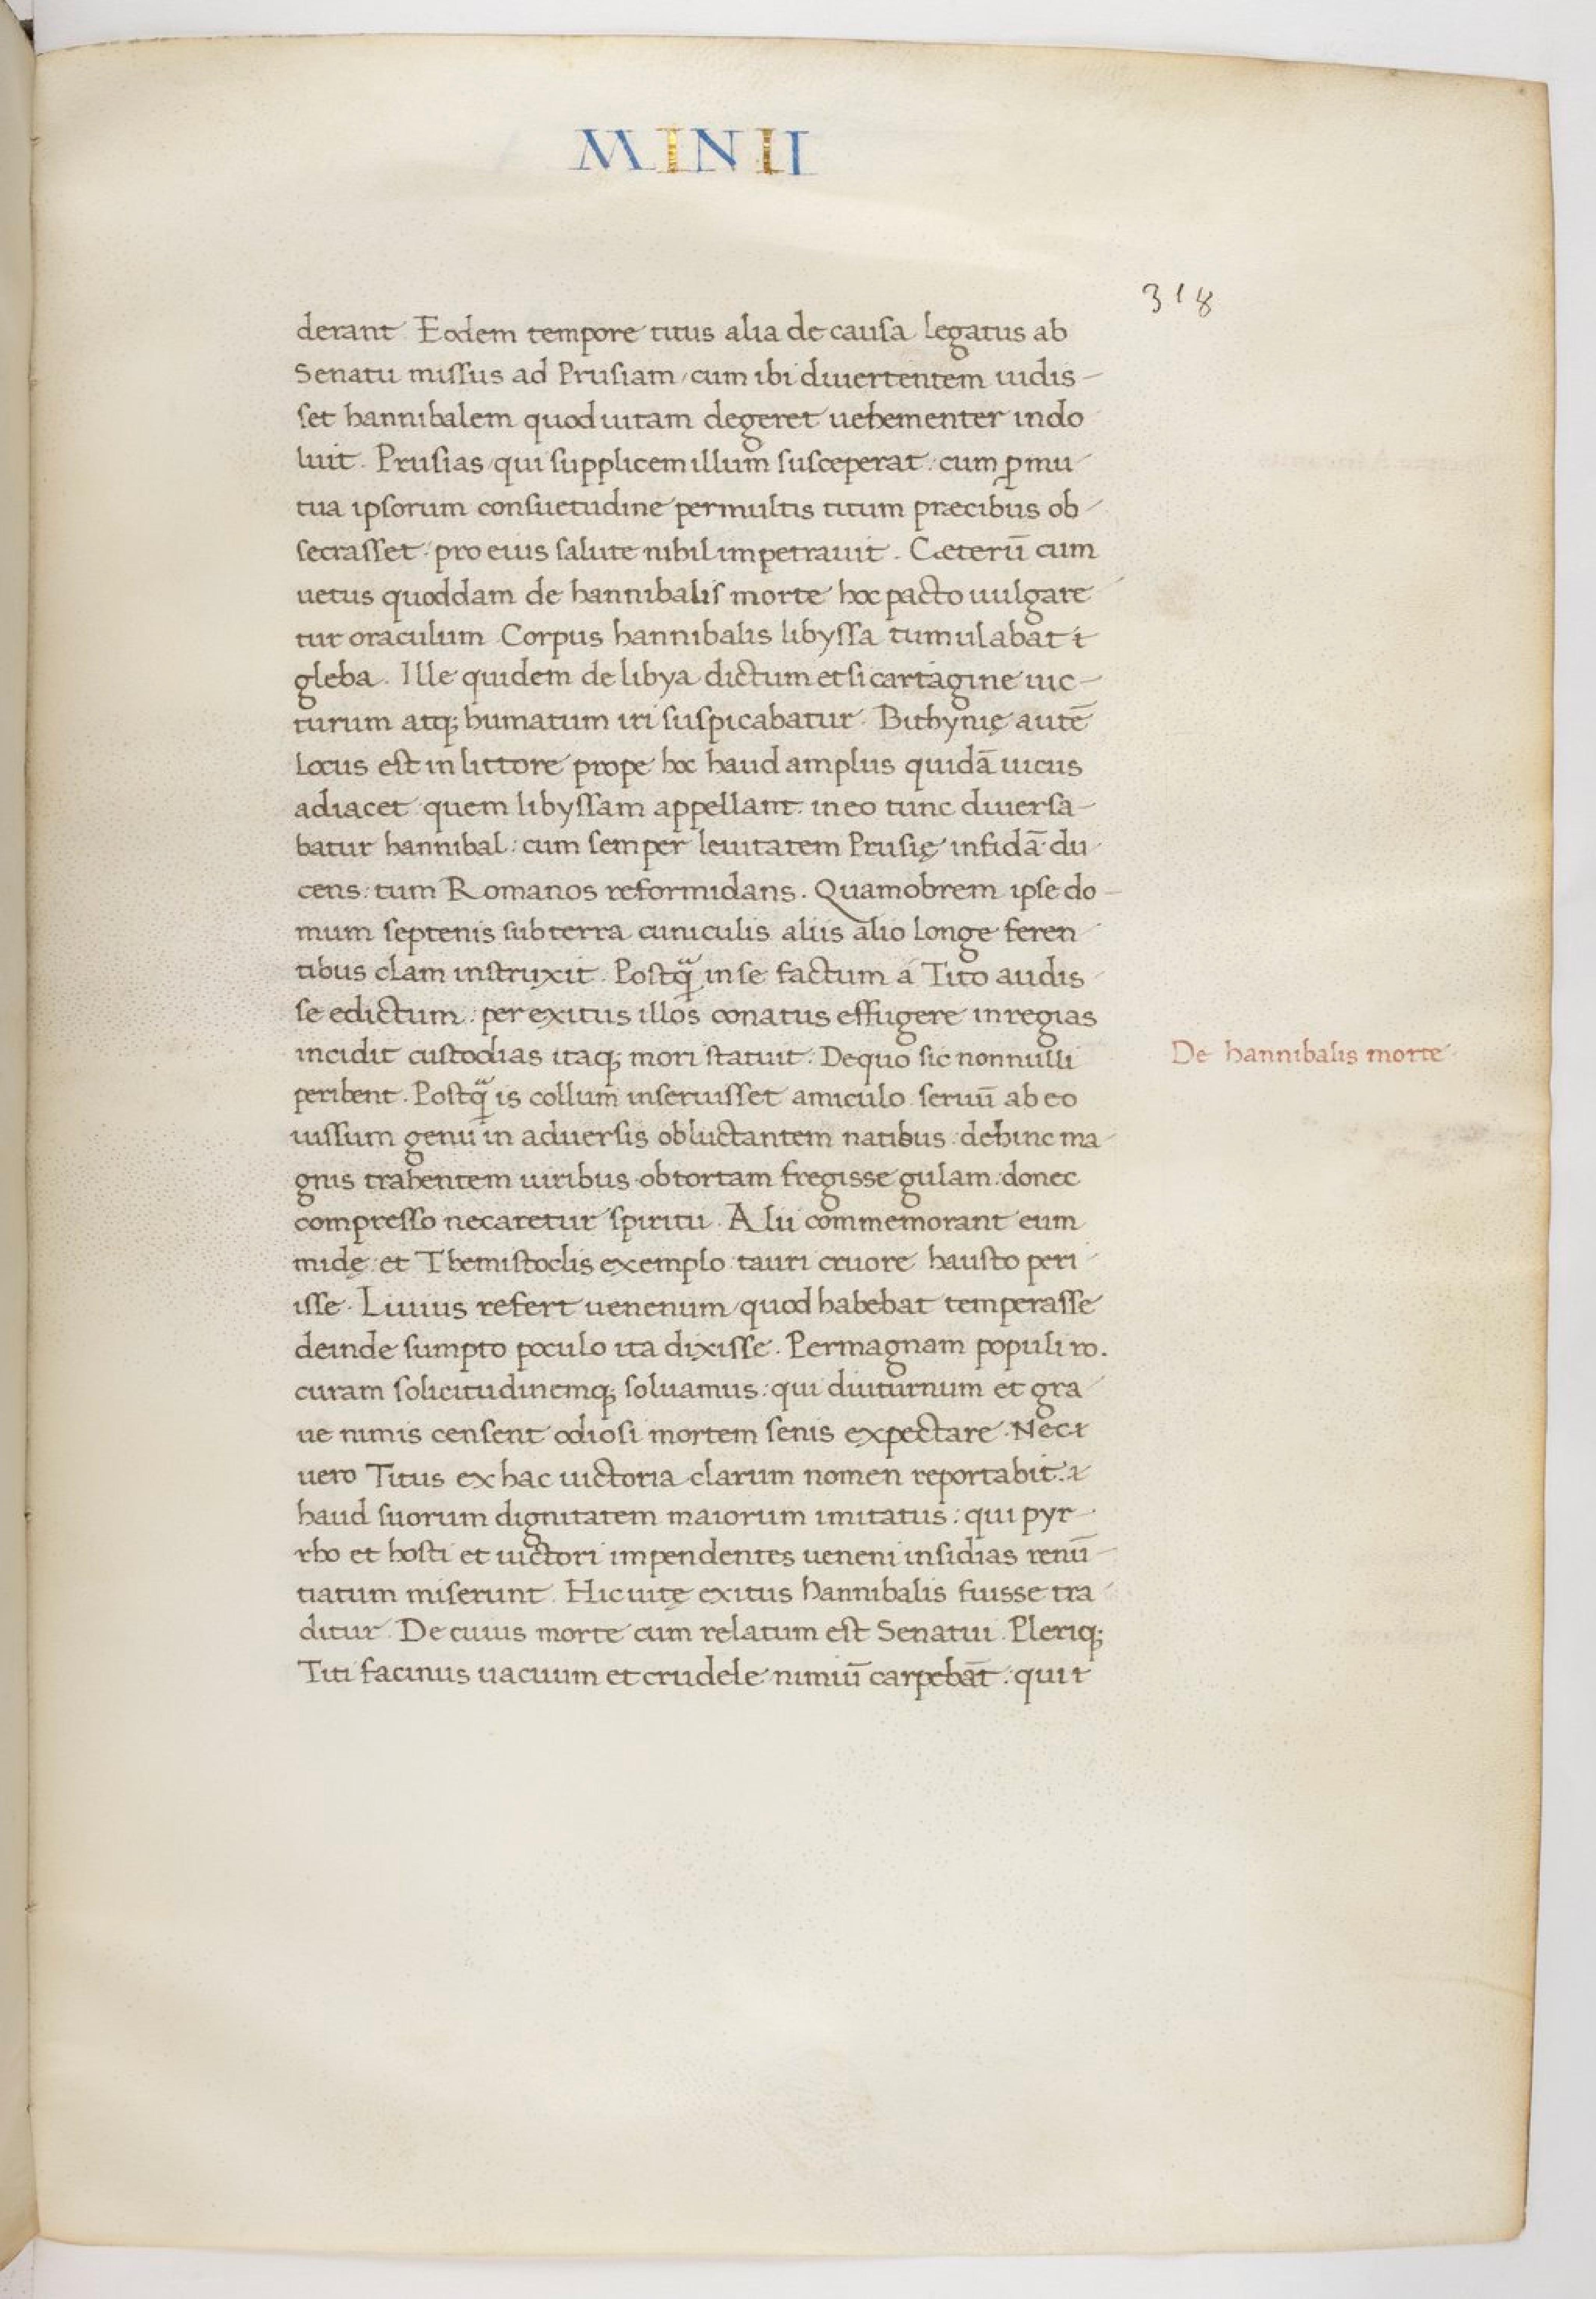 MINII
318
derant. Eodem tempore titus alia de causa legatus ab
Senatu missus ad Prusiam, cum ibi diuertentem uidis-
set hannibalem quod uitam degeret uehementer indo
luit. Prusias, qui supplicem illum susceperat: cum ꝑ mu
tua ipsorum consuetudine permultis titum præcibus ob
secrasset: pro eius salute nihil impetrauit. Cæterū cum
uetus quoddam de hannibalis morte hoc pacto uulgare
tur oraculum. Corpus hannibalis libyssa tumulabat ĩ
gleba. Ille quidem de libya dictum et si cartagine uic-
turum atq; humatum iri suspicabatur. Bithynię autē
Locus est in littore prope hoc haud amplus quidā uicus
adiacet quem libyssam appellant. in eo tunc diuersa-
batur hannibal: cum semper leuitatem Prusię infidā du
cens: tum Romanos reformidans. Quamobrem ipse do-
mum septenis sub terra cuniculis aliis alio longe feren
tibus clam instruxit. Postq̃ in se factum á Tito audis
se edictum: per exitus illos conatus effugere in regias
incidit custodias itaq; mori statuit. De quo sic nonnulli
De hannibalis morte
peribent. Postq̃ is collum inseruisset amiculo seruū ab eo
iussum genu in aduersis obluctantem natibus. dehinc ma
gnis trahentem uiribus obtortam fregisse gulam: donec
compresso necaretur spiritu. Alii commemorant eum
midę et Themistoclis exemplo tauri cruore hausto peri
isse. Liuius refert uenenum, quod habebat temperasse
deinde sumpto poculo ita dixisse. Permagnam populi ro.
curam solicitudinemq; soluamus: qui diuturnum et gra
ue nimis censent odiosi mortem senis expectare. Nec
uero Titus ex hac uictoria clarum nomen reportabit:
haud suorum dignitatem maiorum imitatus: qui pyr-
rho et hosti et uictori impendentes ueneni insidias renū-
tiatum miserunt. Hic uitę exitus hannibalis fuisse tra
ditur. De cuius morte cum relatum est Senatui. Pleriq;
Titi facinus uacuum et crudele nimiū carpebāt: qui